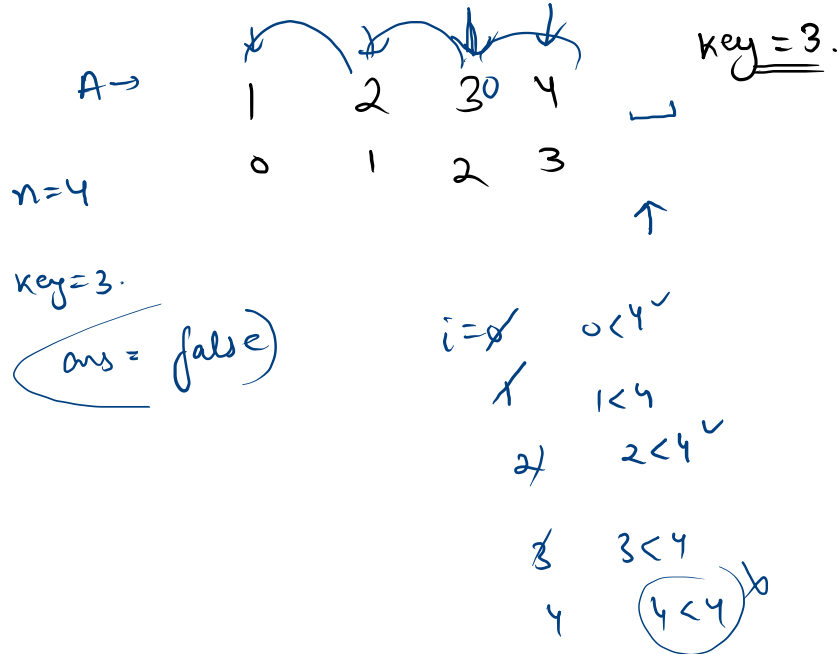 key = 3.
A → 1 2 30 4
0 1 2 3
n=4
key=3.
ans = false
i = 0 0<4 ✓
1 1<4
2 2<4 ✓
3 3<4
4 4<4